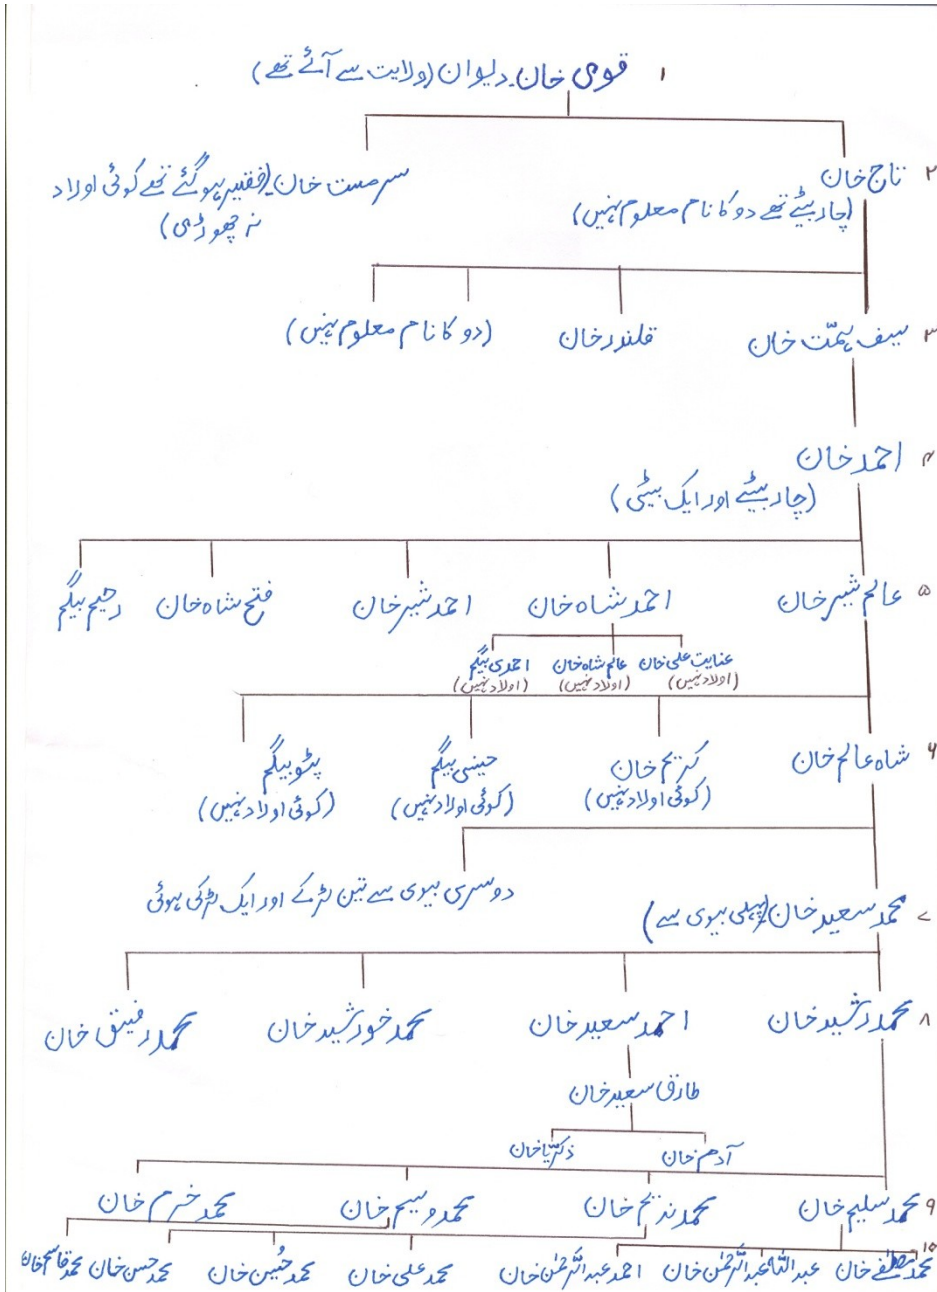 ۱ قوی خان۔ دیوان (ولایت سے آئے تھے)
۲ تاج خان
(چار بیٹے تھے دو کا نام معلوم نہیں)
سرمست خان۔ (فقیر ہو گئے تھے کوئی اولاد
نہ چھوڑی)
۳ سیف ہمّت خان
قلندر خان
(دو کا نام معلوم نہیں)
۴ احمد خان
(چار بیٹے اور ایک بیٹی)
۵ عالم شیر خان
احمد شاہ خان
احمد شیر خان
فتح شاہ خان
رحیم بیگم
عنایت علی خان
(اولاد نہیں)
عالم شاہ خان
(اولاد نہیں)
احمدی بیگم
(اولاد نہیں)
۶ شاہ عالم خان
کریم خان
(کوئی اولاد نہیں)
حسینی بیگم
(کوئی اولاد نہیں)
پٹو بیگم
(کوئی اولاد نہیں)
۷ محمد سعید خان (پہلی بیوی سے)
دوسری بیوی سے تین لڑکے اور ایک لڑکی ہوئی
۸ محمد رشید خان
احمد سعید خان
محمد خورشید خان
محمد رفیق خان
طارق سعید خان
آدم خان
ذکریّا خان
۹ محمد سلیم خان
محمد ندیم خان
محمد وسیم خان
محمد خرم خان
۱۰ محمد مصطفےٰ خان
عبداللہ عبدالرحمٰن خان
احمد عبدالرحمٰن خان
محمد علی خان
محمد حُسین خان
محمد حسن خان
محمد قاسم خان